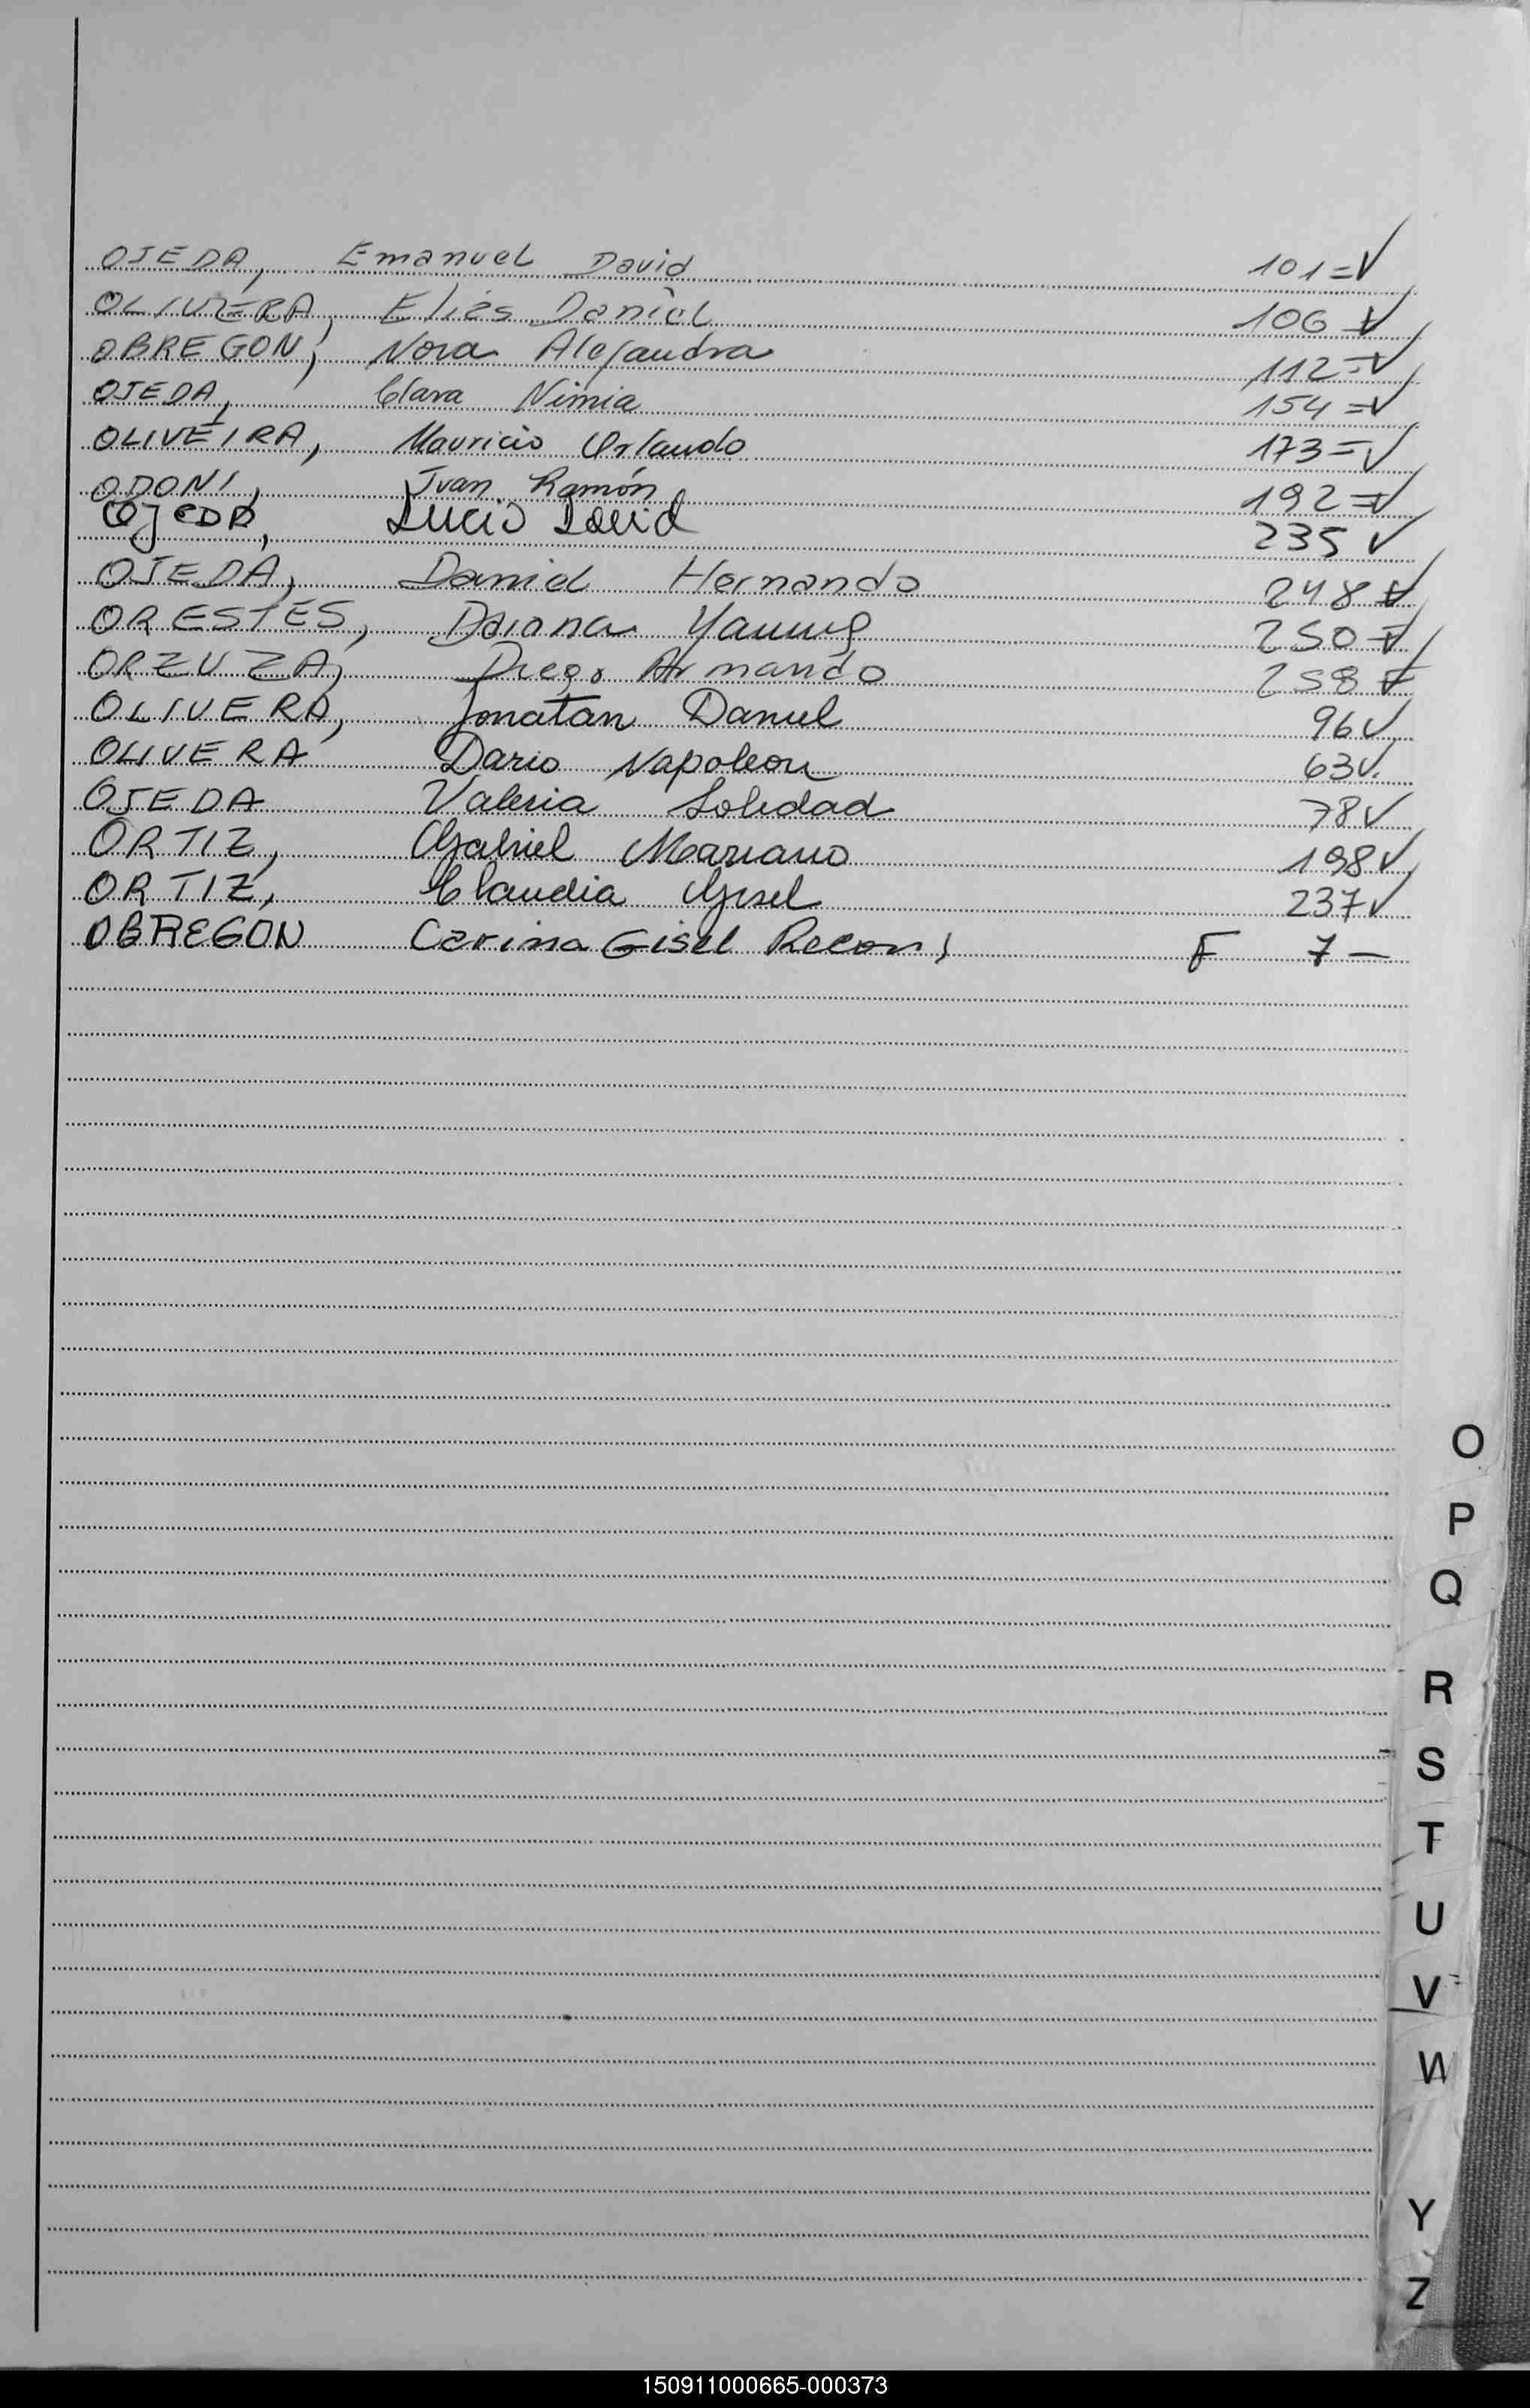 OJEDA, Emanuel David 101=V
OLIVERA, Elias Daniel 106 V
OBREGON, Nora Alejandra 112=V
OJEDA, Clara Nimia 154=V
OLIVEIRA, Mauricio Orlando 173=V
ODONI, Ivan Ramón 192=V
OJEDA, Lucio David 235 V
OJEDA, Daniel Hernando 248=V
ORESTES, Daiana 250=V
ORZUZA, Diego Armando 258=V
OLIVERA, Jonatan Daniel 96V
OLIVERA Dario Napoleon 63V.
OJEDA Valeria Soledad 78V
ORTIZ, Gabriel Mariano 198V
ORTIZ, Claudia Gisel 237V
OBREGON Carina Gisel F 7-
O
P
Q
R
S
T
U
V
W
Y
Z
150911000665-000373